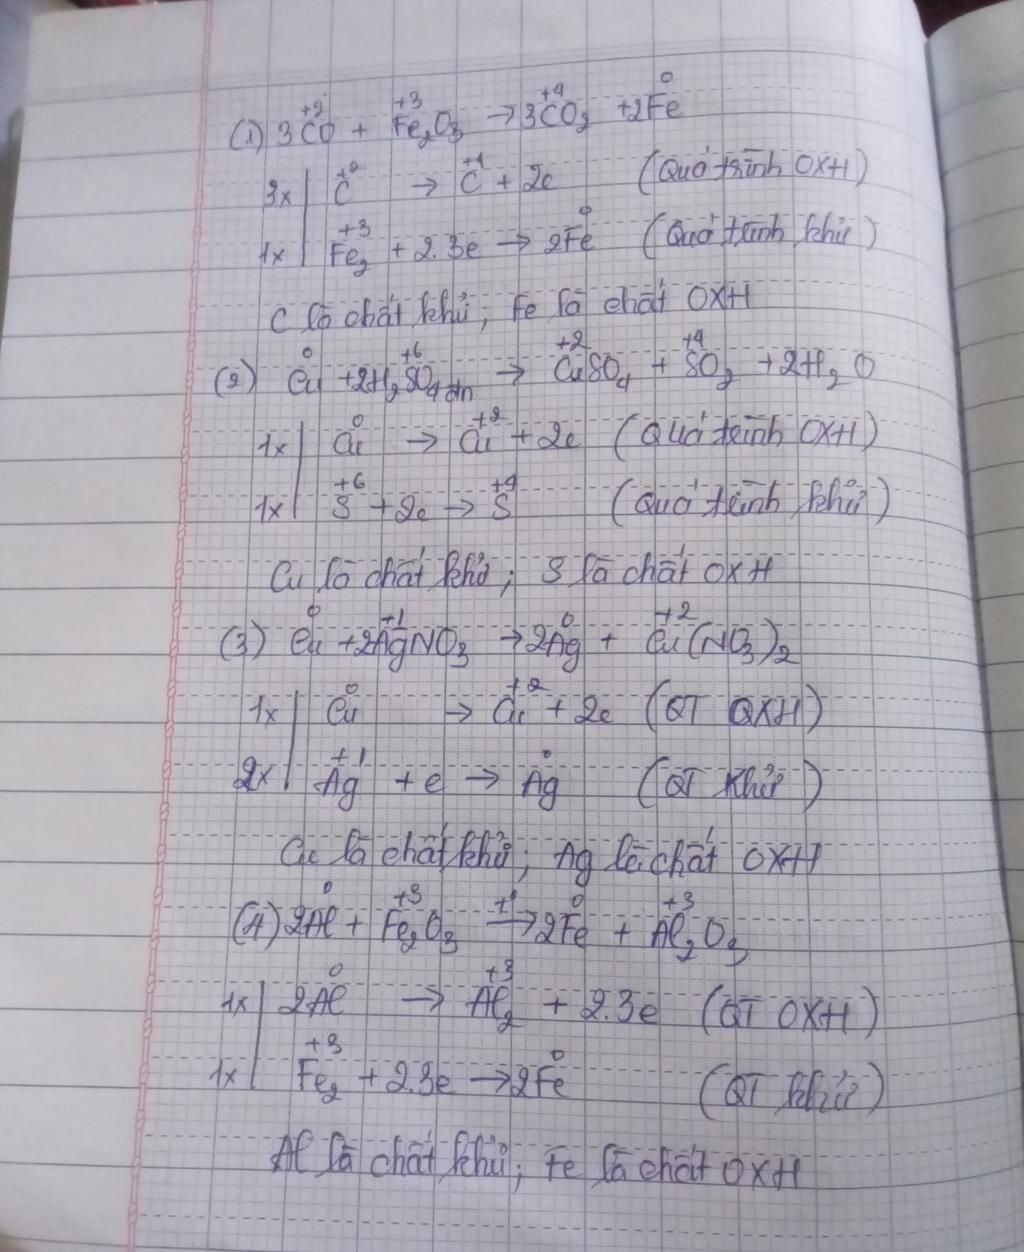 (1) 3CO + Fe2O3 → 3CO2 + 2Fe
3x | C+2 → C+4 + 2e (Quá trình OXH)
1x | Fe2+3 + 2.3e → 2Fe0 (Quá trình khử)
C là chất khử; Fe là chất OXH
(2) Cu + 2H2SO4 đn → CuSO4 + SO2 + 2H2O
1x | Cu0 → Cu+2 + 2e (Quá trình OXH)
1x | S+6 + 2e → S+4 (Quá trình khử)
Cu là chất khử; S là chất OXH
(3) Cu + 2AgNO3 → 2Ag + Cu(NO3)2
1x | Cu0 → Cu+2 + 2e (QT OXH)
2x | Ag+1 + e → Ag0 (QT khử)
Cu là chất khử; Ag là chất OXH
(4) 2Al + Fe2O3 t°→ 2Fe + Al2O3
1x | 2Al0 → Al2+3 + 2.3e (QT OXH)
1x | Fe2+3 + 2.3e → 2Fe0 (QT khử)
Al là chất khử; Fe là chất OXH